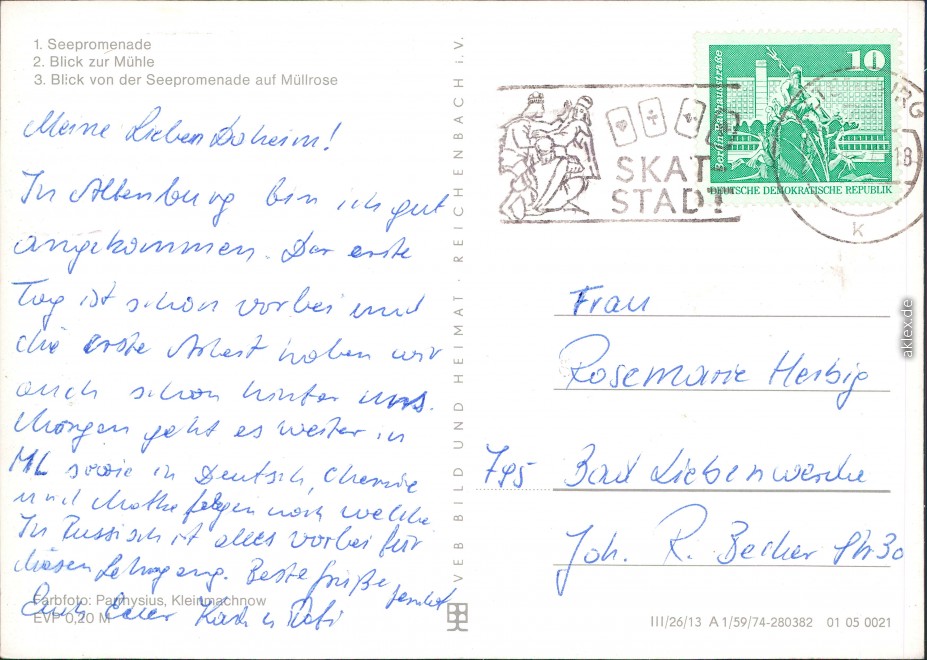 1. Seepromenade
2. Blick zur Mühle
3. Blick von der Seepromenade auf Müllrose
Meine Lieben Daheim!
In Altenburg bin ich gut
angekommen. Der erste
Tag ist schon vorbei und
die erste Arbeit haben wir
auch schon hinter uns.
Morgen geht es weiter in
ML sowie in Deutsch, Chemie
und Mathe folgen noch welche
In Russisch ist alles vorbei für
diesen Lehrgang. Beste Grüße sendet
Euch Euer
Farbfoto: Parthysius, Kleinmachnow
EVP 0,20 M
VEB BILD UND HEIMAT · REICHENBACH i.V.
SKAT
STADT
10
Berlin-Rathausstraße
DEUTSCHE DEMOKRATISCHE REPUBLIK
18
k
Frau
Rosemarie Herbig
795 Bad Liebenwerda
Joh. R. Becher Str 30
III/26/13 A 1/59/74-280382 01 05 0021
aklex.de